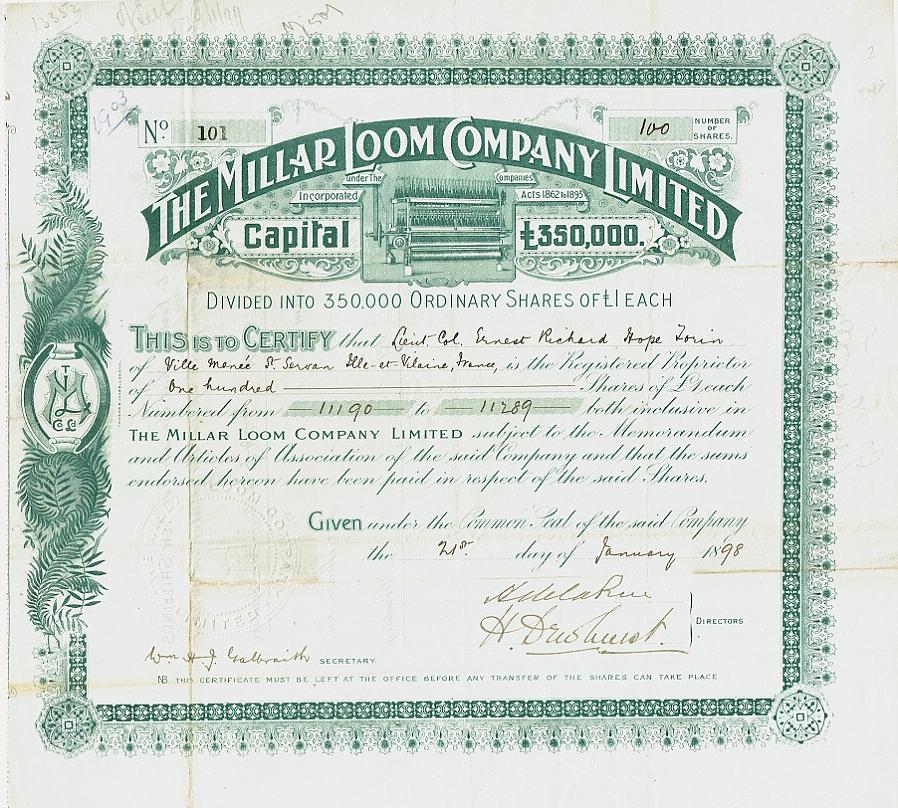 13352
1903
No. 101
100 NUMBER OF SHARES.
THE MILLAR LOOM COMPANY LIMITED
Incorporated under The Companies Acts 1862 to 1893
Capital £350,000.
DIVIDED INTO 350,000 ORDINARY SHARES OF £1 EACH
THIS IS TO CERTIFY that Lieut Col. Ernest Richard Hope Torin
of Ville Menée St. Servan Ille-et-Vilaine, France, is the Registered Proprietor
of One hundred Shares of £1 each
Numbered from 11190 to 11289 both inclusive in
THE MILLAR LOOM COMPANY LIMITED subject to the Memorandum
and Articles of Association of the said Company and that the sums
endorsed hereon have been paid in respect of the said Shares.
Given under the Common Seal of the said Company
the 21st. day of January 1898
H. Dewhurst.
DIRECTORS
Wm H. J. Galbraith SECRETARY.
NB THIS CERTIFICATE MUST BE LEFT AT THE OFFICE BEFORE ANY TRANSFER OF THE SHARES CAN TAKE PLACE